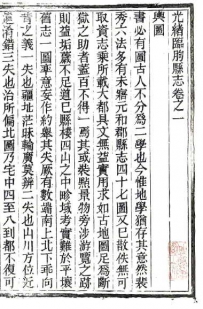 光緒臨朐縣志卷之一
輿圖
書必有圖古人不分爲二學也今惟地學猶存其意然裴
秀六法多有未寤元和郡縣志四十七圖又已散佚無可
取資志乘所載大都具文無益實用求如古地圖足爲斷
獄之助者蓋百不得一焉其或裝點景物旁涉游覽之跡
則益垢厲不足道已縣樓四山之中畛域考實難於平壤
舊志一圖率意妄作約舉其失厥有數端南上北下乖向
背之義一失也疆址茫昧輪廣莫辨二失也山川方位好
錯三失也治所偏北圖乃宅中四至八到都不復可